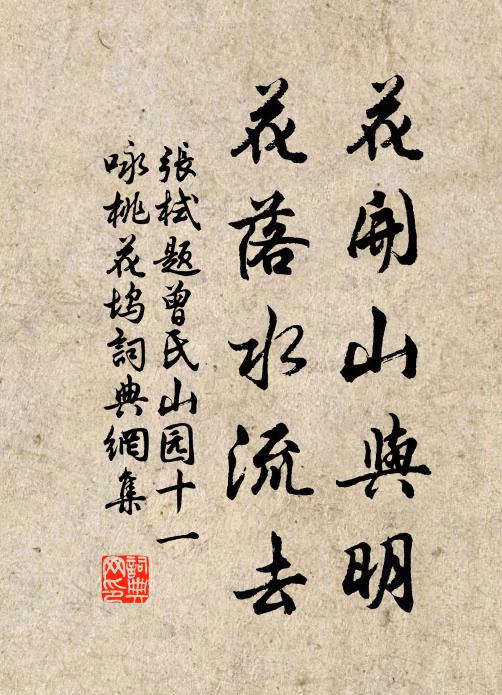 花開山與明
花落水流去
張栻題曾氏山园十一
咏桃花塢詞典網集
詞典网印